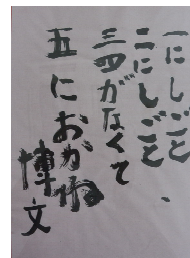 一にしごと
二にしごと
三四がなくて
五におがね
博文